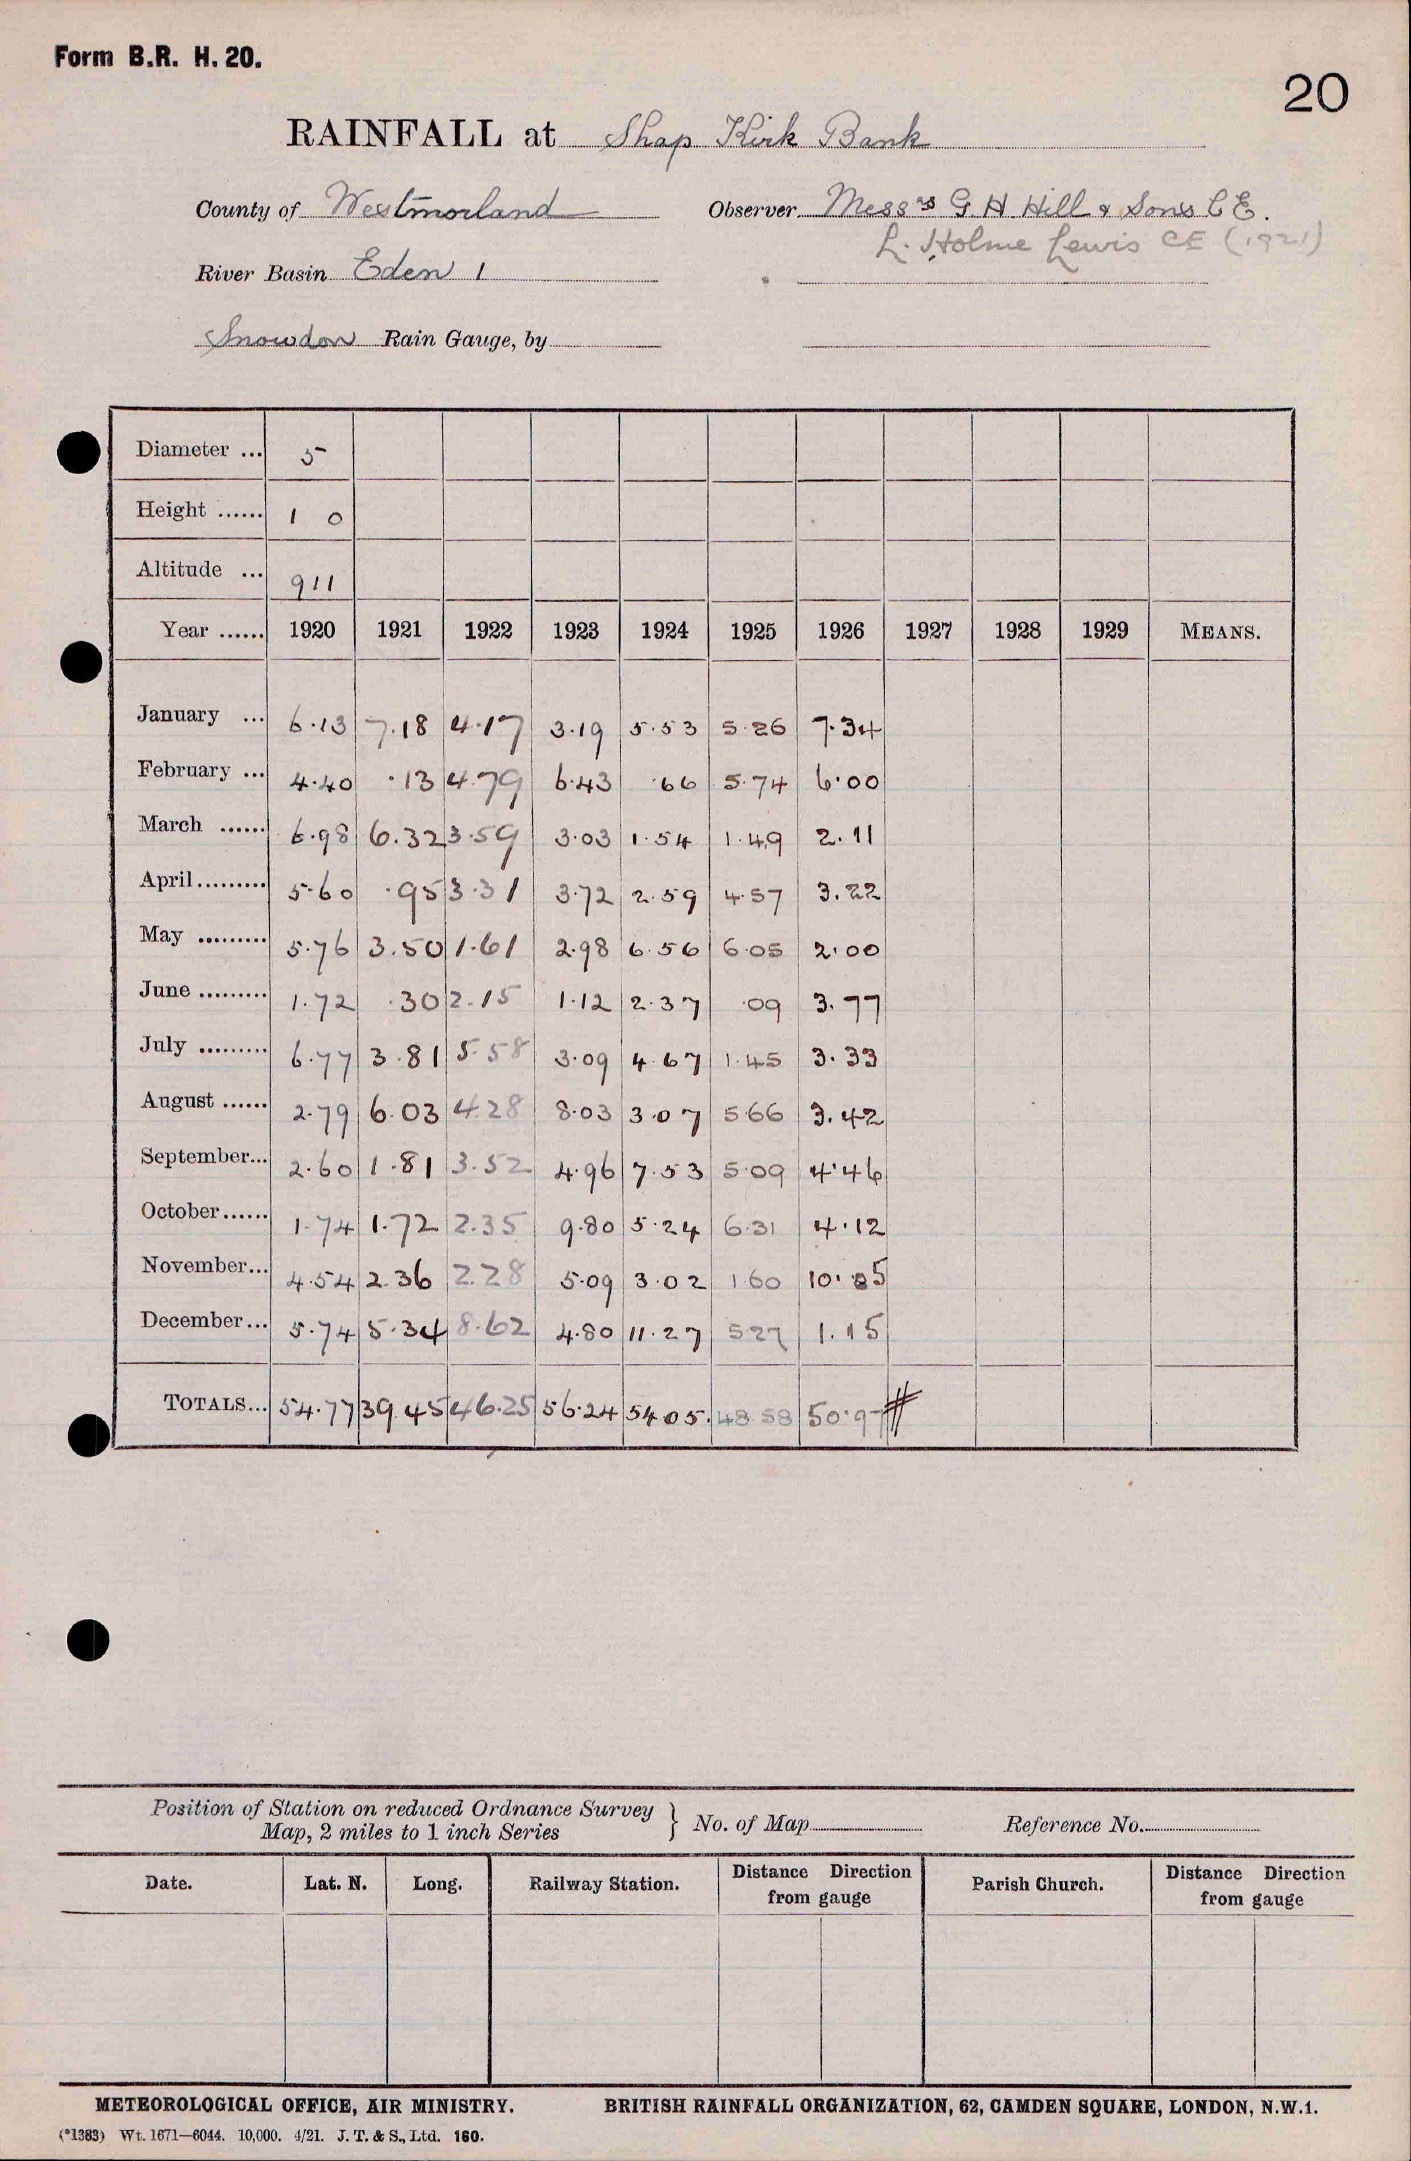 Form B.R. H. 20.
20
RAINFALL at Shap Kirk Bank
County of Westmorland Observer Messrs G H Hill & Sons C E.
L. Holme Lewis CE (1921)
River Basin Eden 1
Snowdon Rain Gauge, by
Diameter ... 5
Height ...... 1 0
Altitude ... 911
Year ...... 1920 1921 1922 1923 1924 1925 1926 1927 1928 1929 MEANS.
January ... 6.13 7.18 4.17 3.19 5.53 5.26 7.34
February ... 4.40 .13 4.79 6.43 .66 5.74 6.00
March ...... 6.98 6.32 3.59 3.03 1.54 1.49 2.11
April ......... 5.60 .95 3.31 3.72 2.59 4.57 3.22
May ......... 5.76 3.50 1.61 2.98 6.56 6.05 2.00
June ......... 1.72 .30 2.15 1.12 2.37 .09 3.77
July ......... 6.77 3.81 5.58 3.09 4.67 1.45 3.33
August ...... 2.79 6.03 4.28 8.03 3.07 5.66 3.42
September... 2.60 1.81 3.52 4.96 7.53 5.09 4.46
October...... 1.74 1.72 2.35 9.80 5.24 6.31 4.12
November... 4.54 2.36 2.28 5.09 3.02 1.60 10.05
December... 5.74 5.34 8.62 4.80 11.27 5.27 1.15
TOTALS... 54.77 39.45 46.25 56.24 54.05. 48.58 50.97 #
Position of Station on reduced Ordnance Survey
Map, 2 miles to 1 inch Series } No. of Map Reference No.
Date. Lat. N. Long. Railway Station. Distance Direction from gauge Parish Church. Distance Direction from gauge
METEOROLOGICAL OFFICE, AIR MINISTRY. BRITISH RAINFALL ORGANIZATION, 62, CAMDEN SQUARE, LONDON, N.W.1.
(*1383) Wt. 1671—6044. 10,000. 4/21. J. T. & S., Ltd. 160.